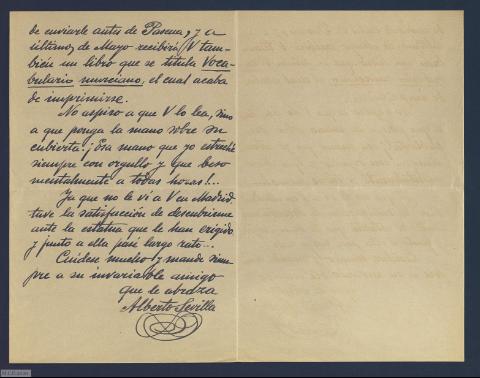 de enviarle antes de Pascua, y a
últimos de Mayo recibirá V tam-
bién un libro que se titula Voca-
bulario murciano, el cual acaba
de imprimirse.
No aspiro a que V lo lea, sino
a que ponga la mano sobre su
cubierta. ¡Esa mano que yo estreché
siempre con orgullo y que beso
mentalmente a todas horas!...
Ya que no le vi a V en Madrid
tuve la satisfacción de descubrirme
ante la estatua que le han erigido
y junto a ella pasé largo rato...
Cuídese mucho y mande siem-
pre a su invariable amigo
que le abraza
Alberto Sevilla